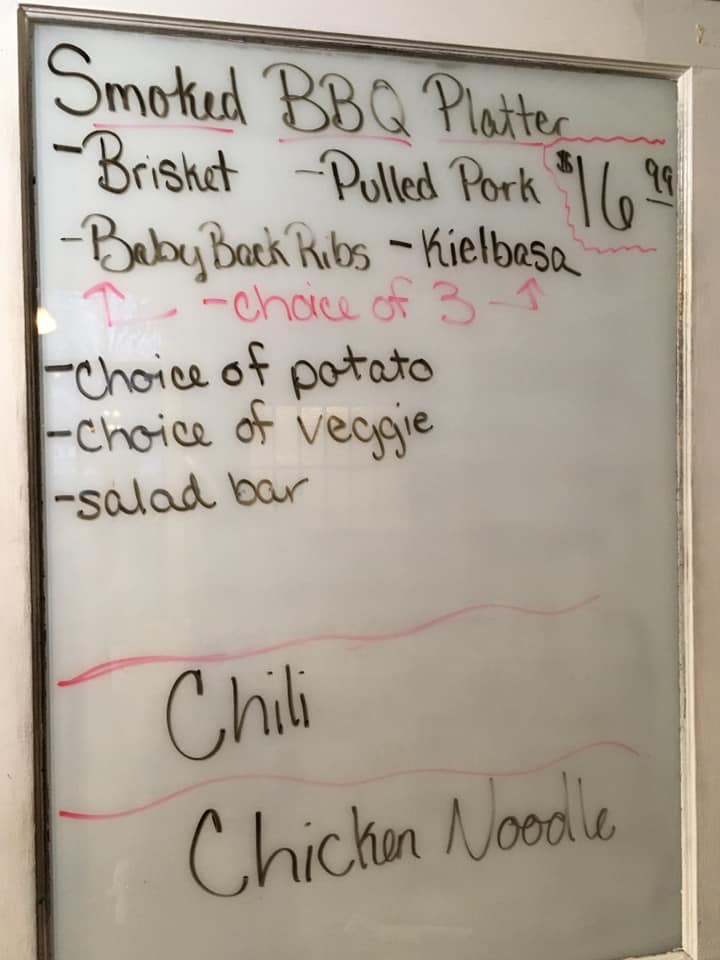 Smoked BBQ Platter
-Brisket -Pulled Pork $16 99
-Baby Back Ribs -Kielbasa
-choice of 3-
-choice of potato
-choice of veggie
-salad bar
Chili
Chicken Noodle